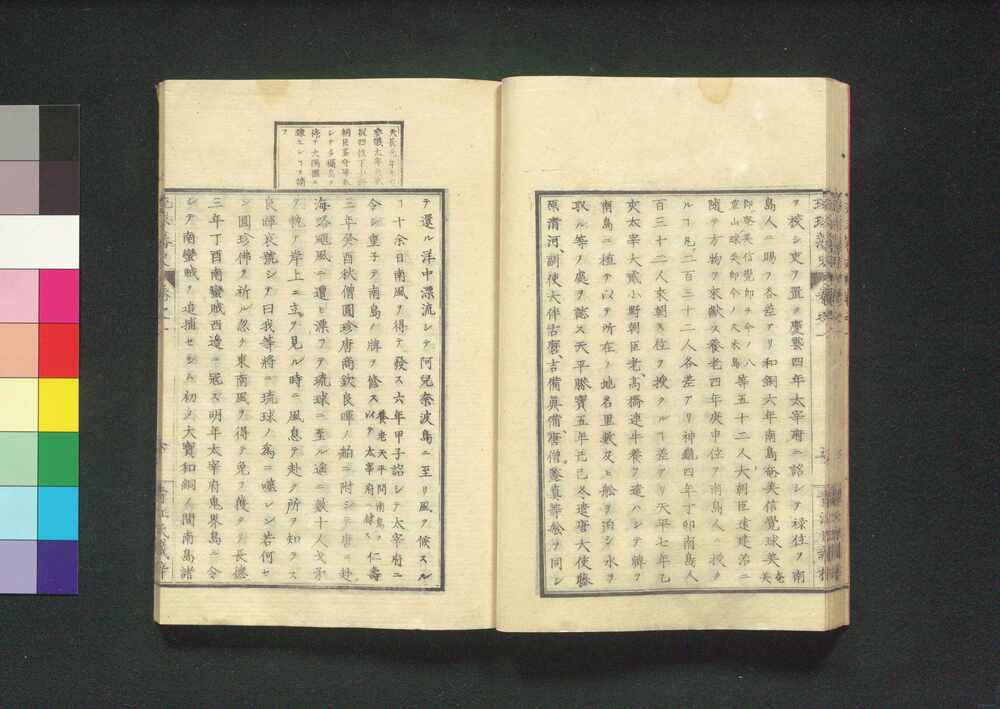 ヲ校シ吏ヲ置ク慶雲四年太宰府ニ詔シテ禄位ヲ南
島人ニ賜フ各差アリ和銅六年南島奄美信覺球美
等五十二人大朝臣遠建治ニ
隨テ方物ヲ來獻ス養老四年庚申位ヲ南島人ニ授ク
ルコ凡二百三十二人各差アリ神龜四年丁卯南島人
百三十二人來朝ス位ヲ授クルコ差アリ天平七年乙
亥太宰大貳小野朝臣老高橋連牛養ヲ遣ハシテ牌ヲ
南島ニ植テ以テ所在ノ地名里數及ヒ舩ヲ泊シ水ヲ
取ル等ノ處ヲ誌ス天平勝寶五年己己冬遣唐大使藤
原清河副使大伴古麿吉備眞備唐僧鑒眞等舩ヲ同シ
テ還ル洋中漂流シテ阿兒奈波島ニ至リ風ヲ候スル
コ十余日南風ヲ得テ發ス六年甲子詔シテ太宰府ニ
令シ重子テ南島ノ牌ヲ修ス
養老天平間南島ノ
以テ太宰府ニ隸ス
仁壽
三年癸酉秋僧圓珍唐商欽良暉ノ舶ニ附シテ唐ニ赴
海路颶風ニ遭ヒ漂フテ琉球ニ至ル遙ニ數十人戈矛
ヲ執テ岸上ニ立ヲ見ル時ニ風息テ赴ク所ヲ知ラス
良暉哀號シテ曰我等將ニ琉球ノ為ニ噬レン若何セ
ン圓珍佛ヲ祈ル忽チ東南風ヲ得テ免ヲ獲タリ長德
三年丁酉南蠻賊西邊ニ冦ス明年太宰府鬼界島ニ令
シテ南蠻賊ヲ追捕セシム初メ大寶和銅ノ間南島諸